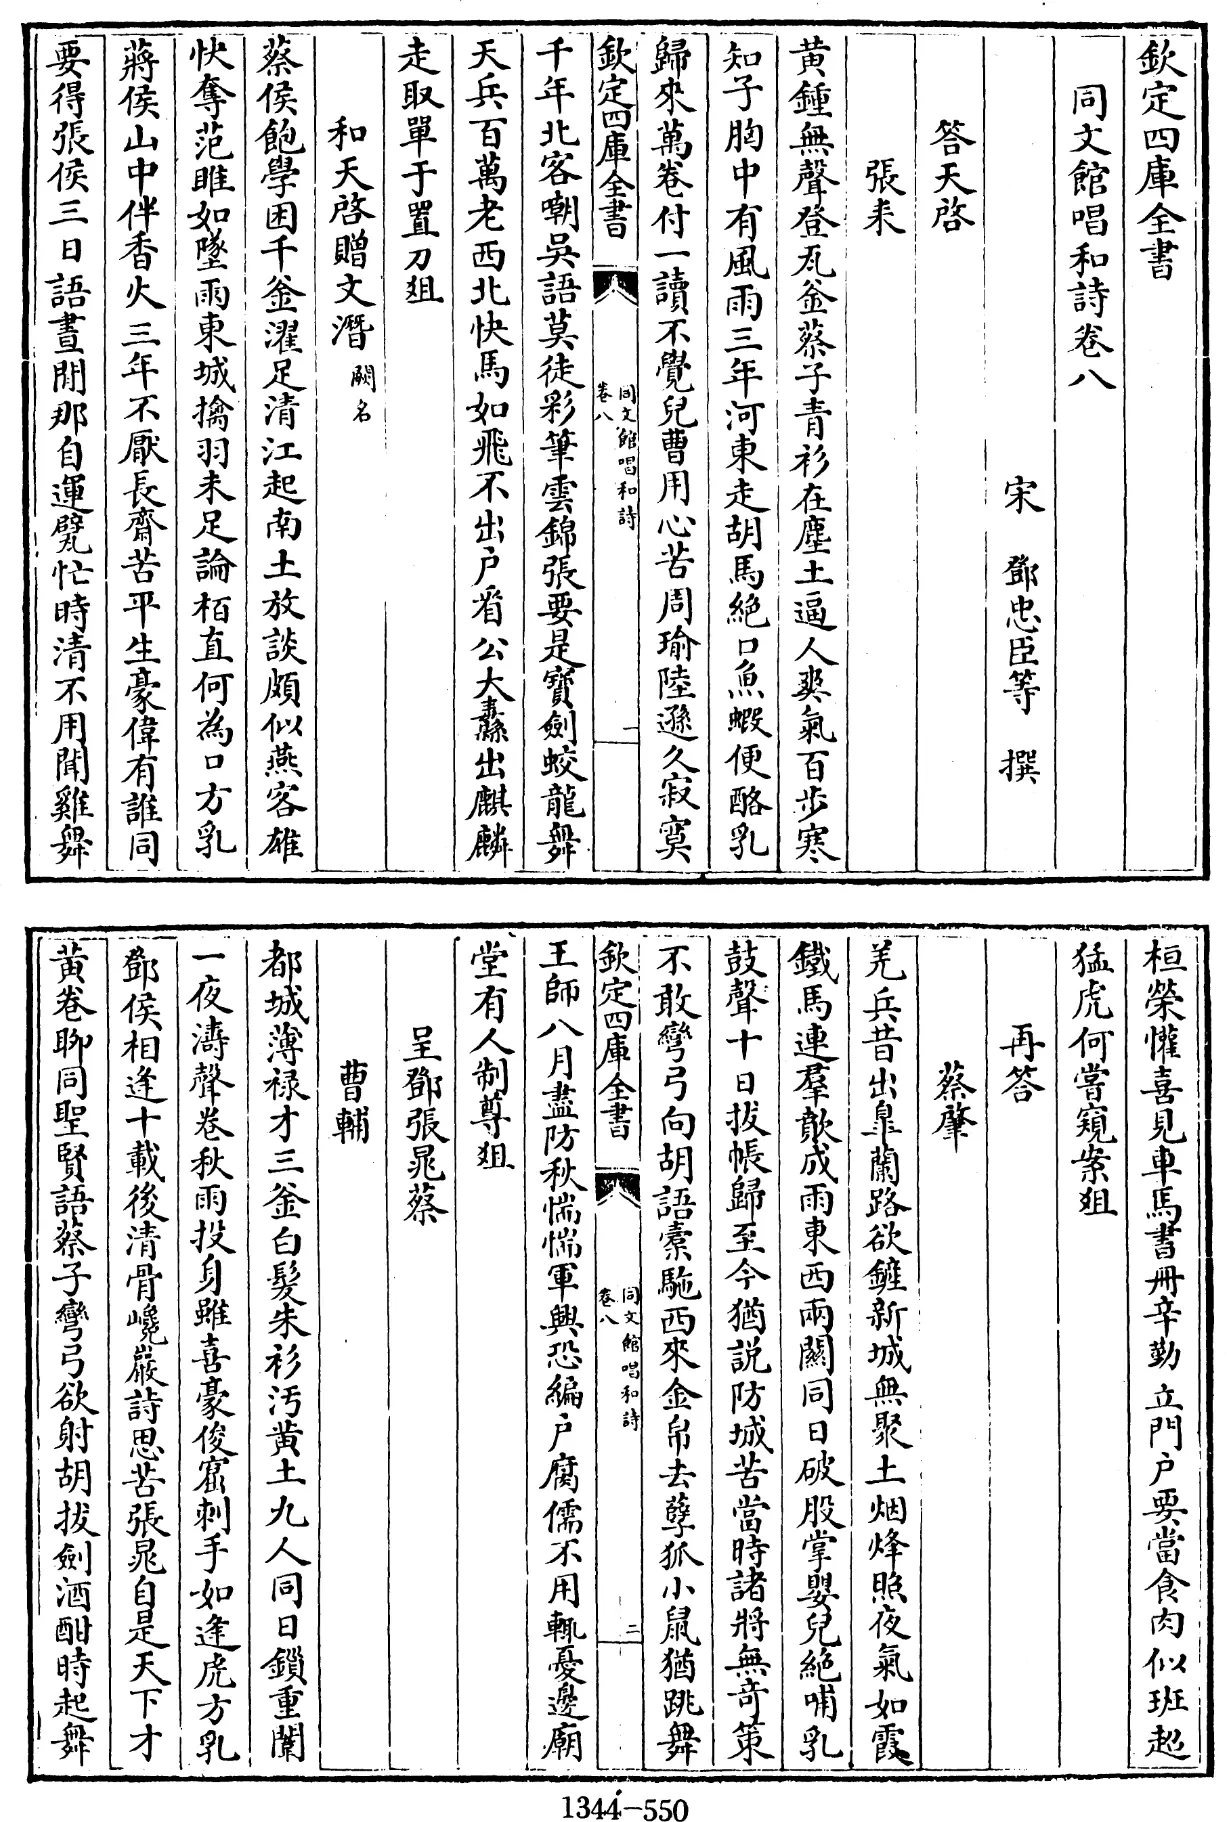 欽定四庫全書
同文館唱和詩卷八
宋　鄧忠臣等　撰
答天啓
張耒
黄鍾無聲登瓦釜蔡子青衫在塵土逼人爽氣百步寒
知子胸中有風雨三年河東走胡馬絶口魚蝦便酪乳
歸來萬卷付一讀不覺兒曹用心苦周瑜陸遜久寂寞
欽定四庫全書
同文館唱和詩
卷八
一
千年北客嘲吳語莫徒彩筆雲錦張要是寶劍蛟龍舞
天兵百萬老西北快馬如飛不出户看公大纛出麒麟
走取單于置刀俎
和天啓贈文潛 闕名
蔡侯飽學困千釜濯足清江起南土放談頗似燕客雄
快奪范雎如墜雨東城擒羽未足論栢直何為口方乳
蔣侯山中伴香火三年不厭長齋苦平生豪偉有誰同
要得張侯三日語晝閒那自運甓忙時清不用聞雞舞
桓榮懽喜見車馬書冊辛勤立門户要當食肉似班超
猛虎何嘗窺案俎
再答
蔡肇
羌兵昔出皐蘭路欲鏟新城無聚土烟烽照夜氣如霞
鐵馬連羣歕成雨東西兩關同日破股掌嬰兒絶哺乳
鼓聲十日拔帳歸至今猶説防城苦當時諸將無奇策
不敢彎弓向胡語橐駞西來金帛去孽狐小鼠猶跳舞
欽定四庫全書
同文館唱和詩
卷八
二
王師八月盡防秋惴惴軍興恐編户腐儒不用輒憂邊廟
堂有人制尊俎
呈鄧張晁蔡
曹輔
都城薄禄才三釜白髮朱衫汚黄土九人同日鎖重闈
一夜濤聲卷秋雨投身雖喜豪俊窟刺手如逢虎方乳
鄧侯相逢十載後清骨巉巖詩思苦張晁自是天下才
黄卷聊同聖賢語蔡子彎弓欲射胡拔劍酒酣時起舞
1344-550